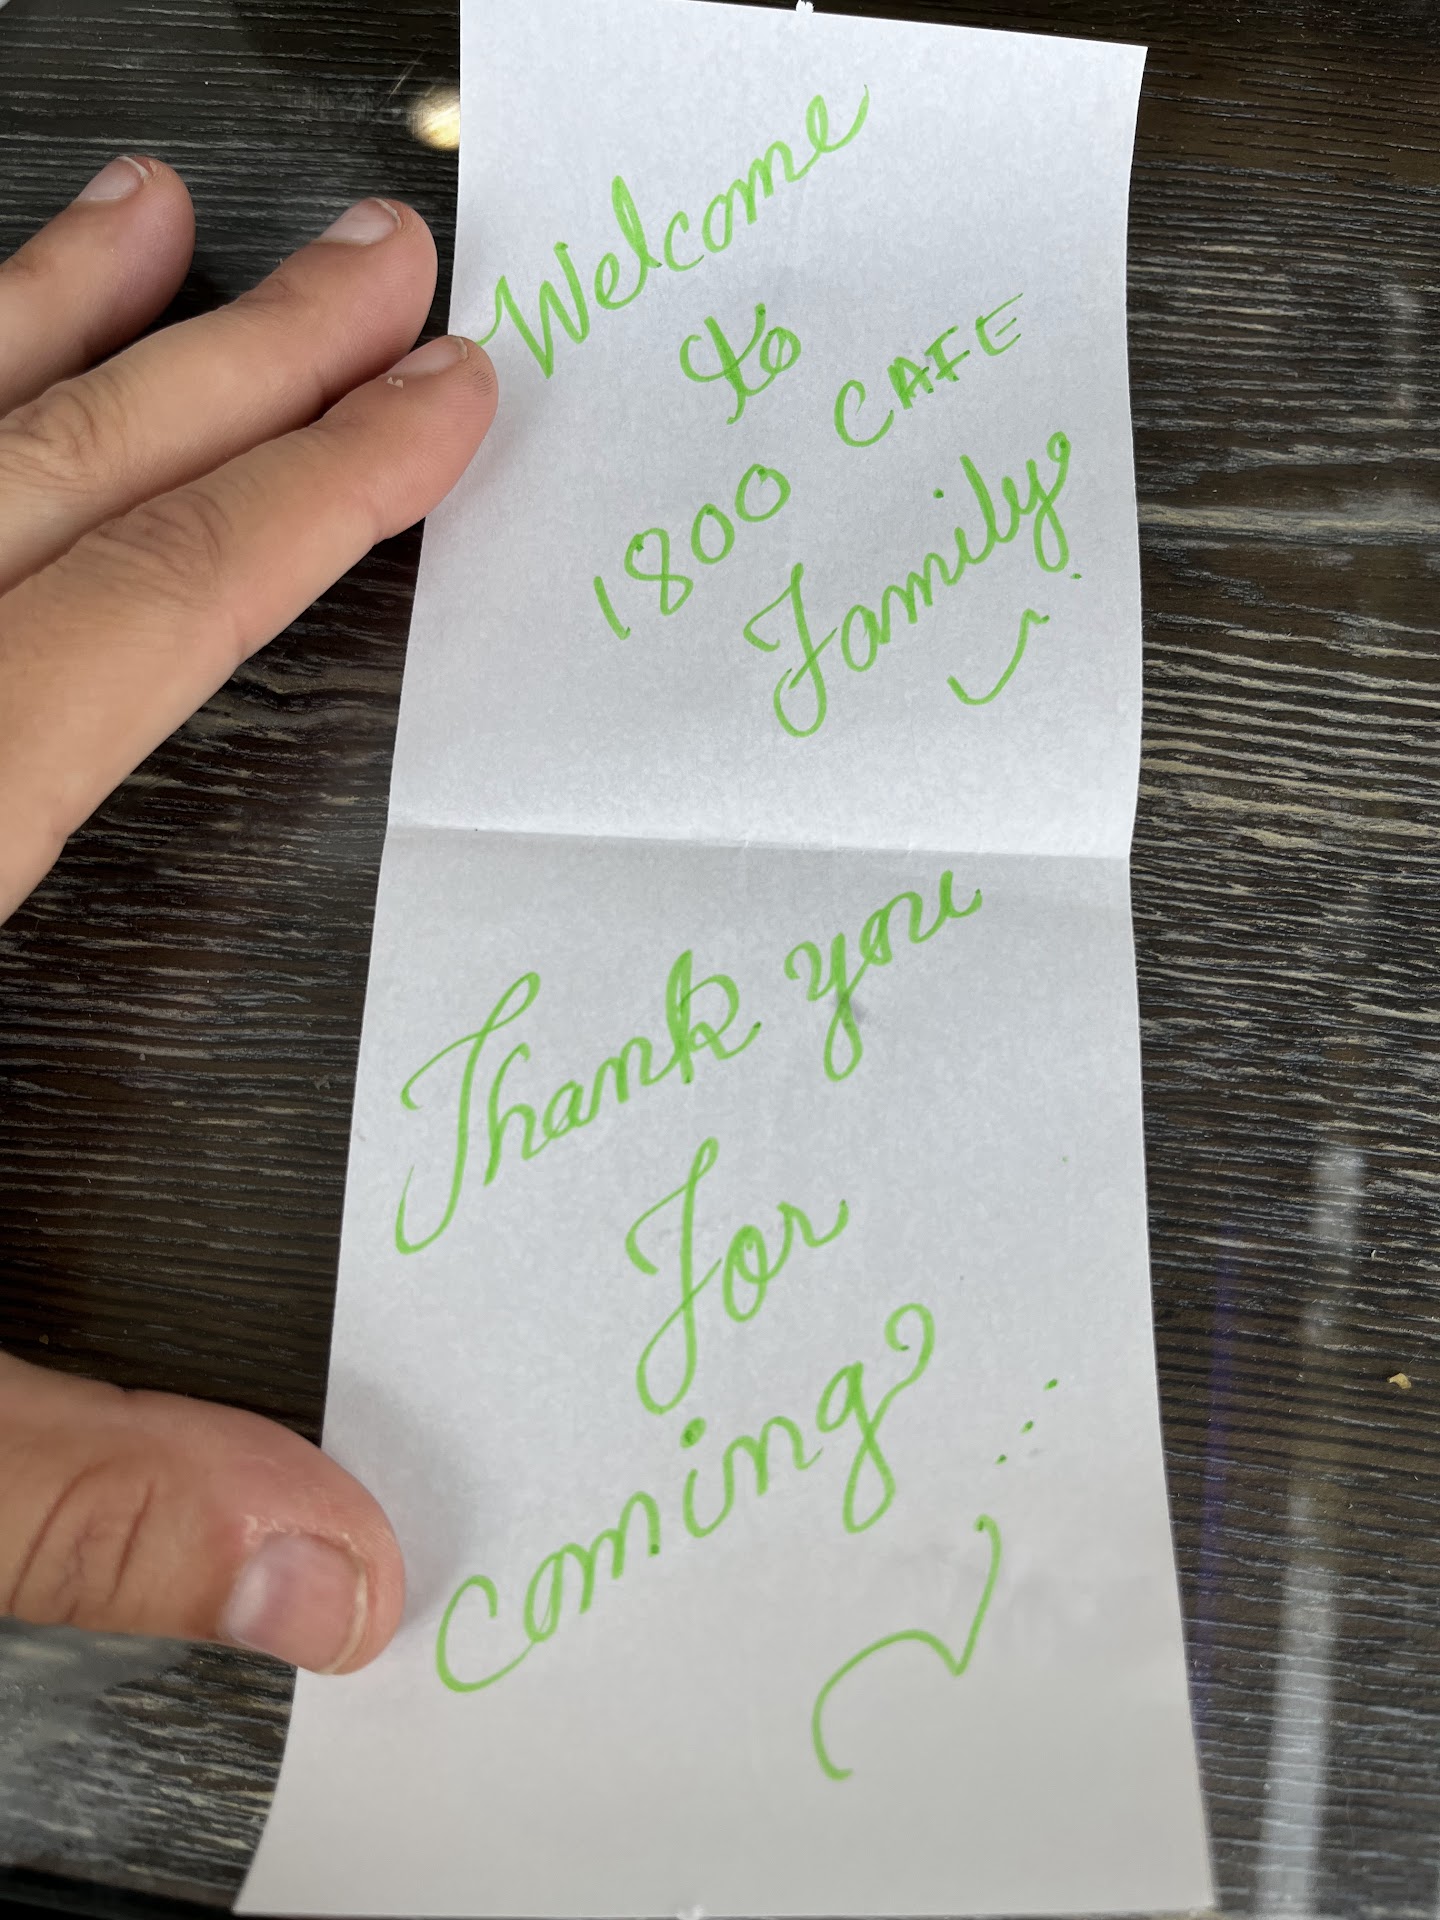 Welcome
to
1800 CAFE
Family.
Thank you
For
coming